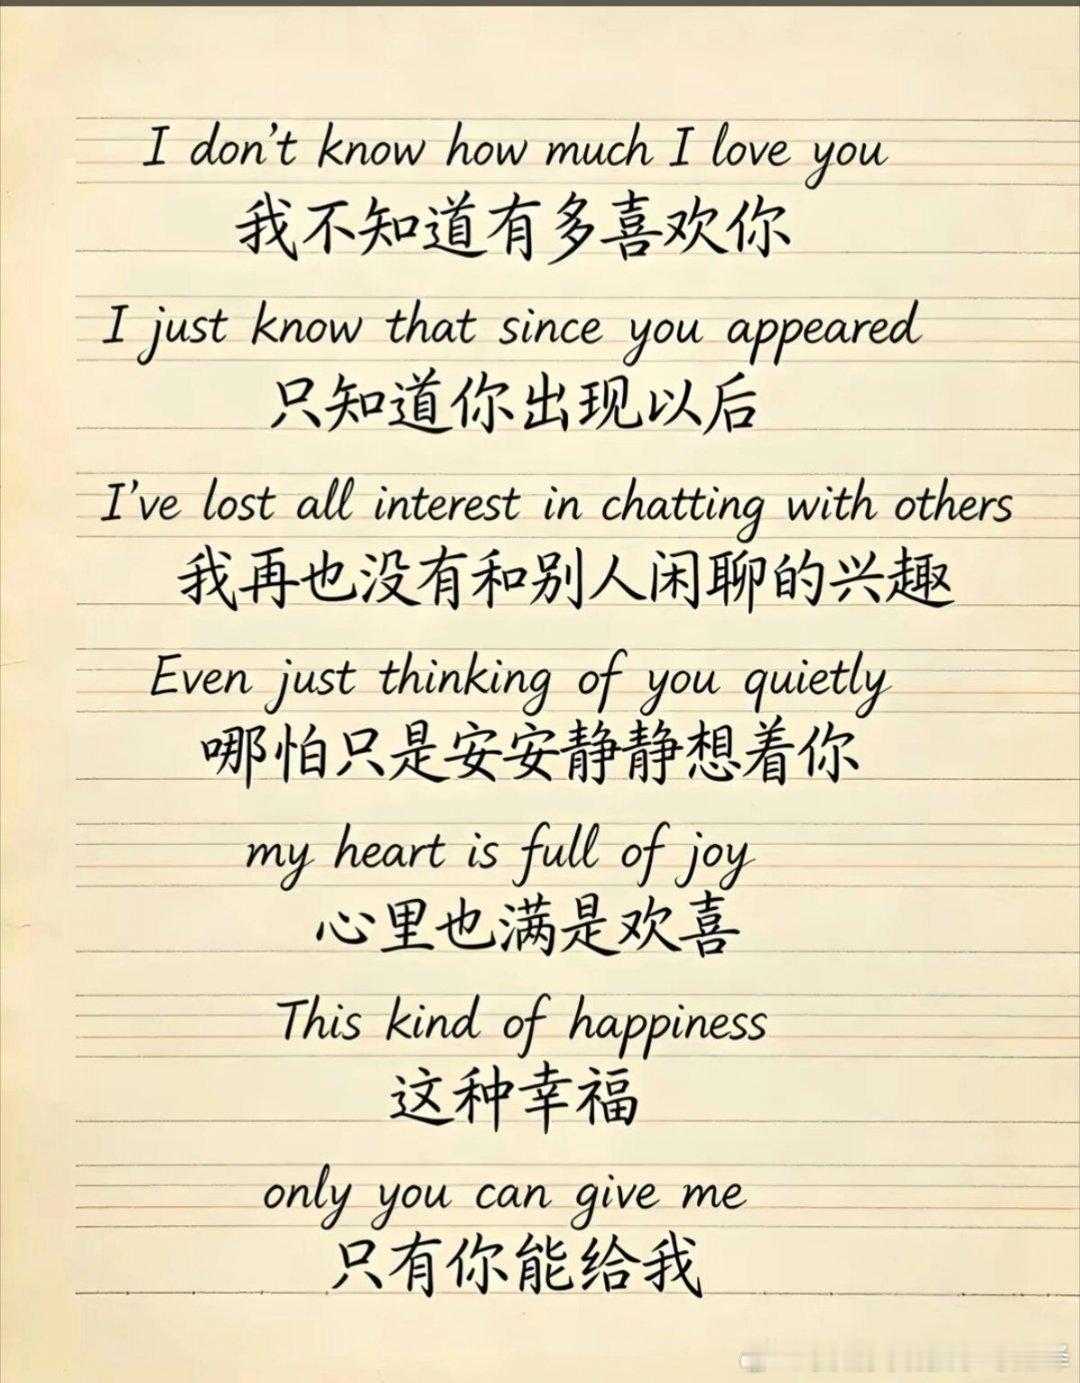 I don't know how much I love you
我不知道有多喜欢你
I just know that since you appeared
只知道你出现以后
I've lost all interest in chatting with others
我再也没有和别人闲聊的兴趣
Even just thinking of you quietly
哪怕只是安安静静想着你
my heart is full of joy
心里也满是欢喜
This kind of happiness
这种幸福
only you can give me
只有你能给我